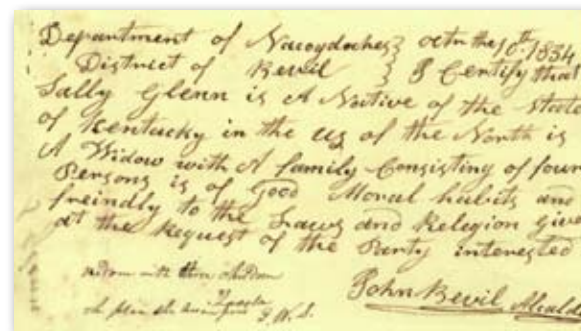 Department of Nacogdoches } octr the 10th 1834
District of Bevil } I Certify that
Sally Glenn is A Native of the state
of Kentucky in the us of the North is
A Widow with A family Consisting of four
Persons is of Good Moral habits and
freindly to the Laws and Religion give
at the Request of the Party interested
John Bevil Alcald
widow with three children